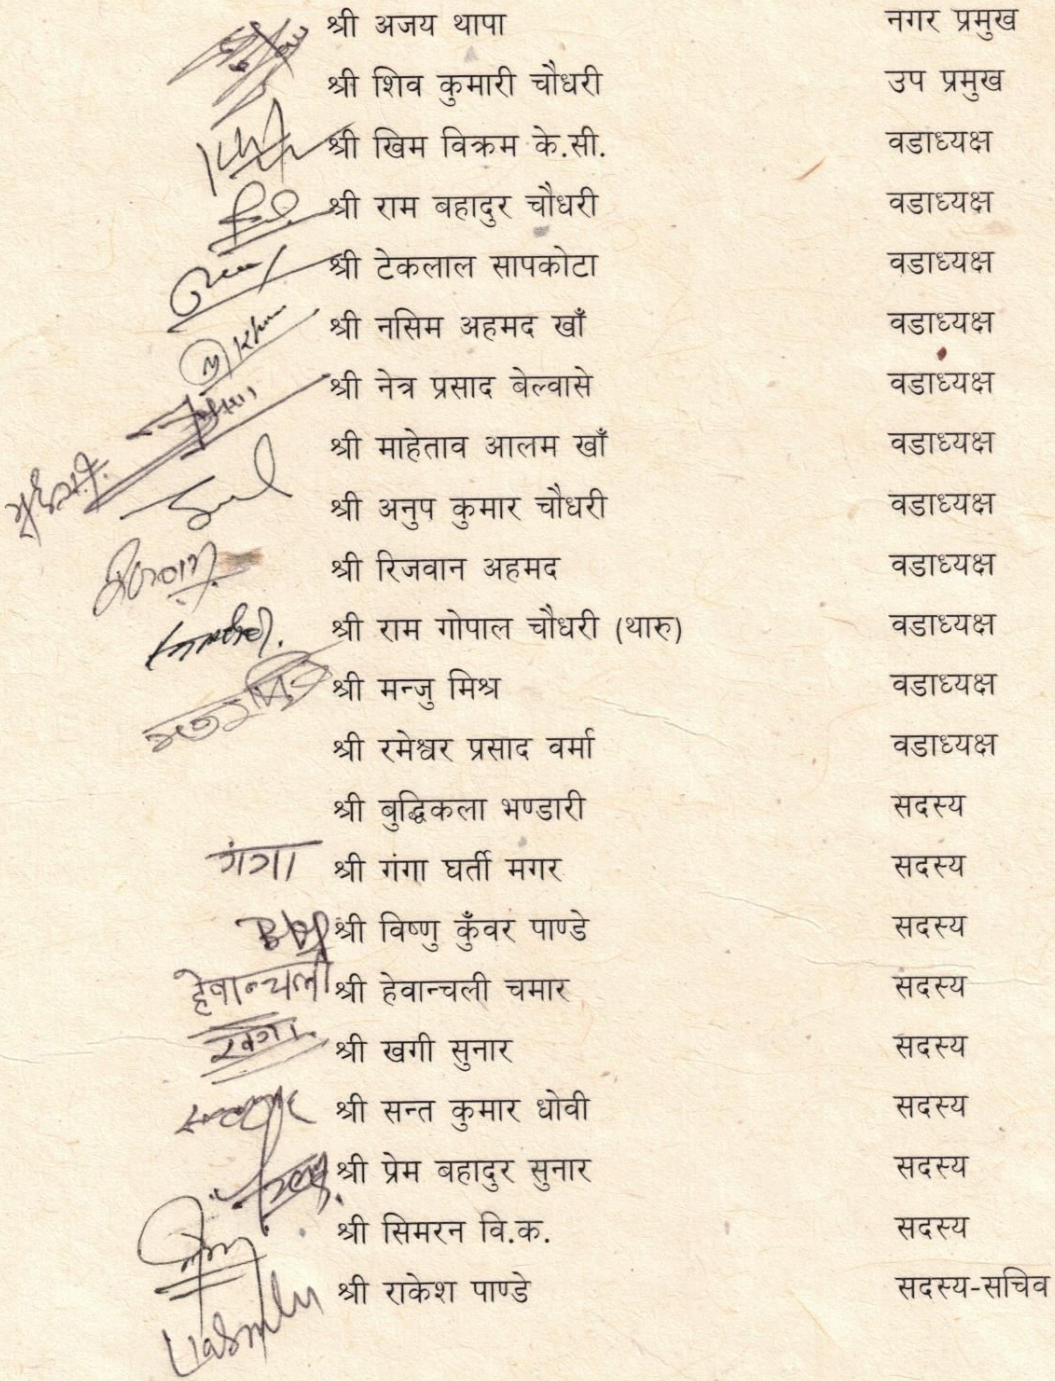 श्री अजय थापा नगर प्रमुख
श्री शिव कुमारी चौधरी उप प्रमुख
श्री खिम विक्रम के.सी. वडाध्यक्ष
श्री राम बहादुर चौधरी वडाध्यक्ष
श्री टेकलाल सापकोटा वडाध्यक्ष
श्री नसिम अहमद खाँ वडाध्यक्ष
श्री नेत्र प्रसाद बेल्वासे वडाध्यक्ष
श्री माहेताव आलम खाँ वडाध्यक्ष
श्री अनुप कुमार चौधरी वडाध्यक्ष
श्री रिजवान अहमद वडाध्यक्ष
श्री राम गोपाल चौधरी (थारु) वडाध्यक्ष
श्री मन्जु मिश्र वडाध्यक्ष
श्री रमेश्वर प्रसाद वर्मा वडाध्यक्ष
श्री बुद्धिकला भण्डारी सदस्य
गंगा श्री गंगा घर्ती मगर सदस्य
श्री विष्णु कुँवर पाण्डे सदस्य
हेवान्चली श्री हेवान्चली चमार सदस्य
श्री खगी सुनार सदस्य
श्री सन्त कुमार धोवी सदस्य
श्री प्रेम बहादुर सुनार सदस्य
श्री सिमरन वि.क. सदस्य
श्री राकेश पाण्डे सदस्य-सचिव